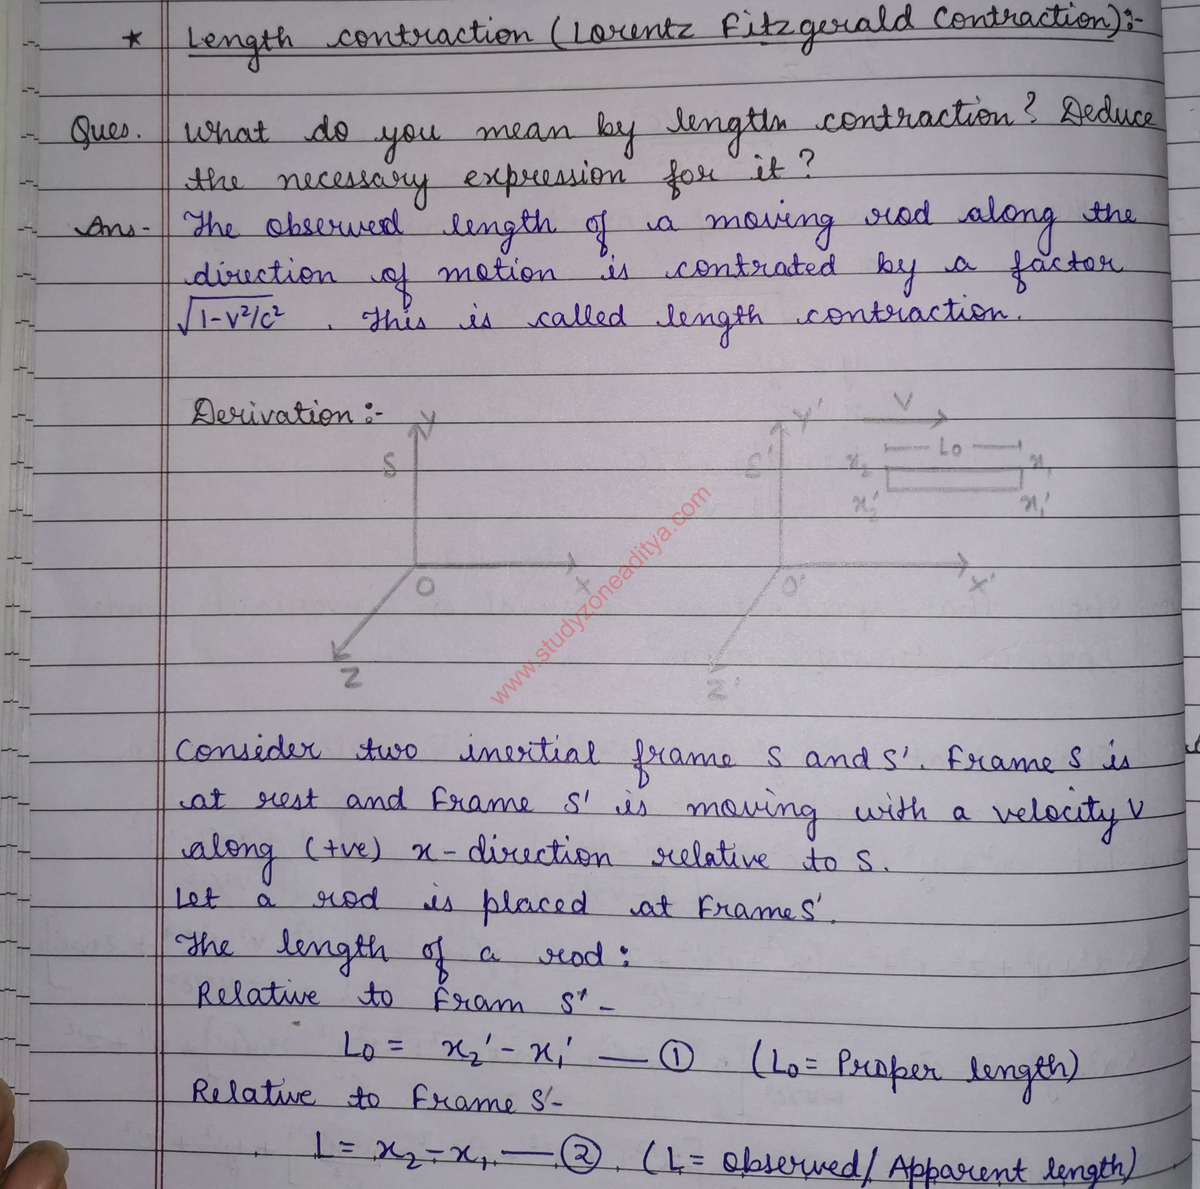 * Length contraction (Lorentz Fitzgerald Contraction):-
Ques. What do you mean by length contraction? Deduce
the necessary expression for it?
Ans- The observed length of a moving rod along the
direction of motion is contrated by a factor
√1-v²/c² . This is called length contraction.
Derivation :-
Y
S
O
X
Z
Y'
S'
O'
X'
Z'
V
L₀
x₂
x₁
x₂'
x₁'
www.studyzoneaditya.com
Consider two inertial frame S and S'. Frame S is
at rest and Frame S' is moving with a velocity V
along (+ve) x-direction relative to S.
Let a rod is placed at Frame S'.
The length of a rod :
Relative to Fram S' -
L₀ = x₂' - x₁' — ① (L₀ = Proper length)
Relative to Frame S'-
L = x₂ - x₁ — ② (L = Observed/Apparent length)